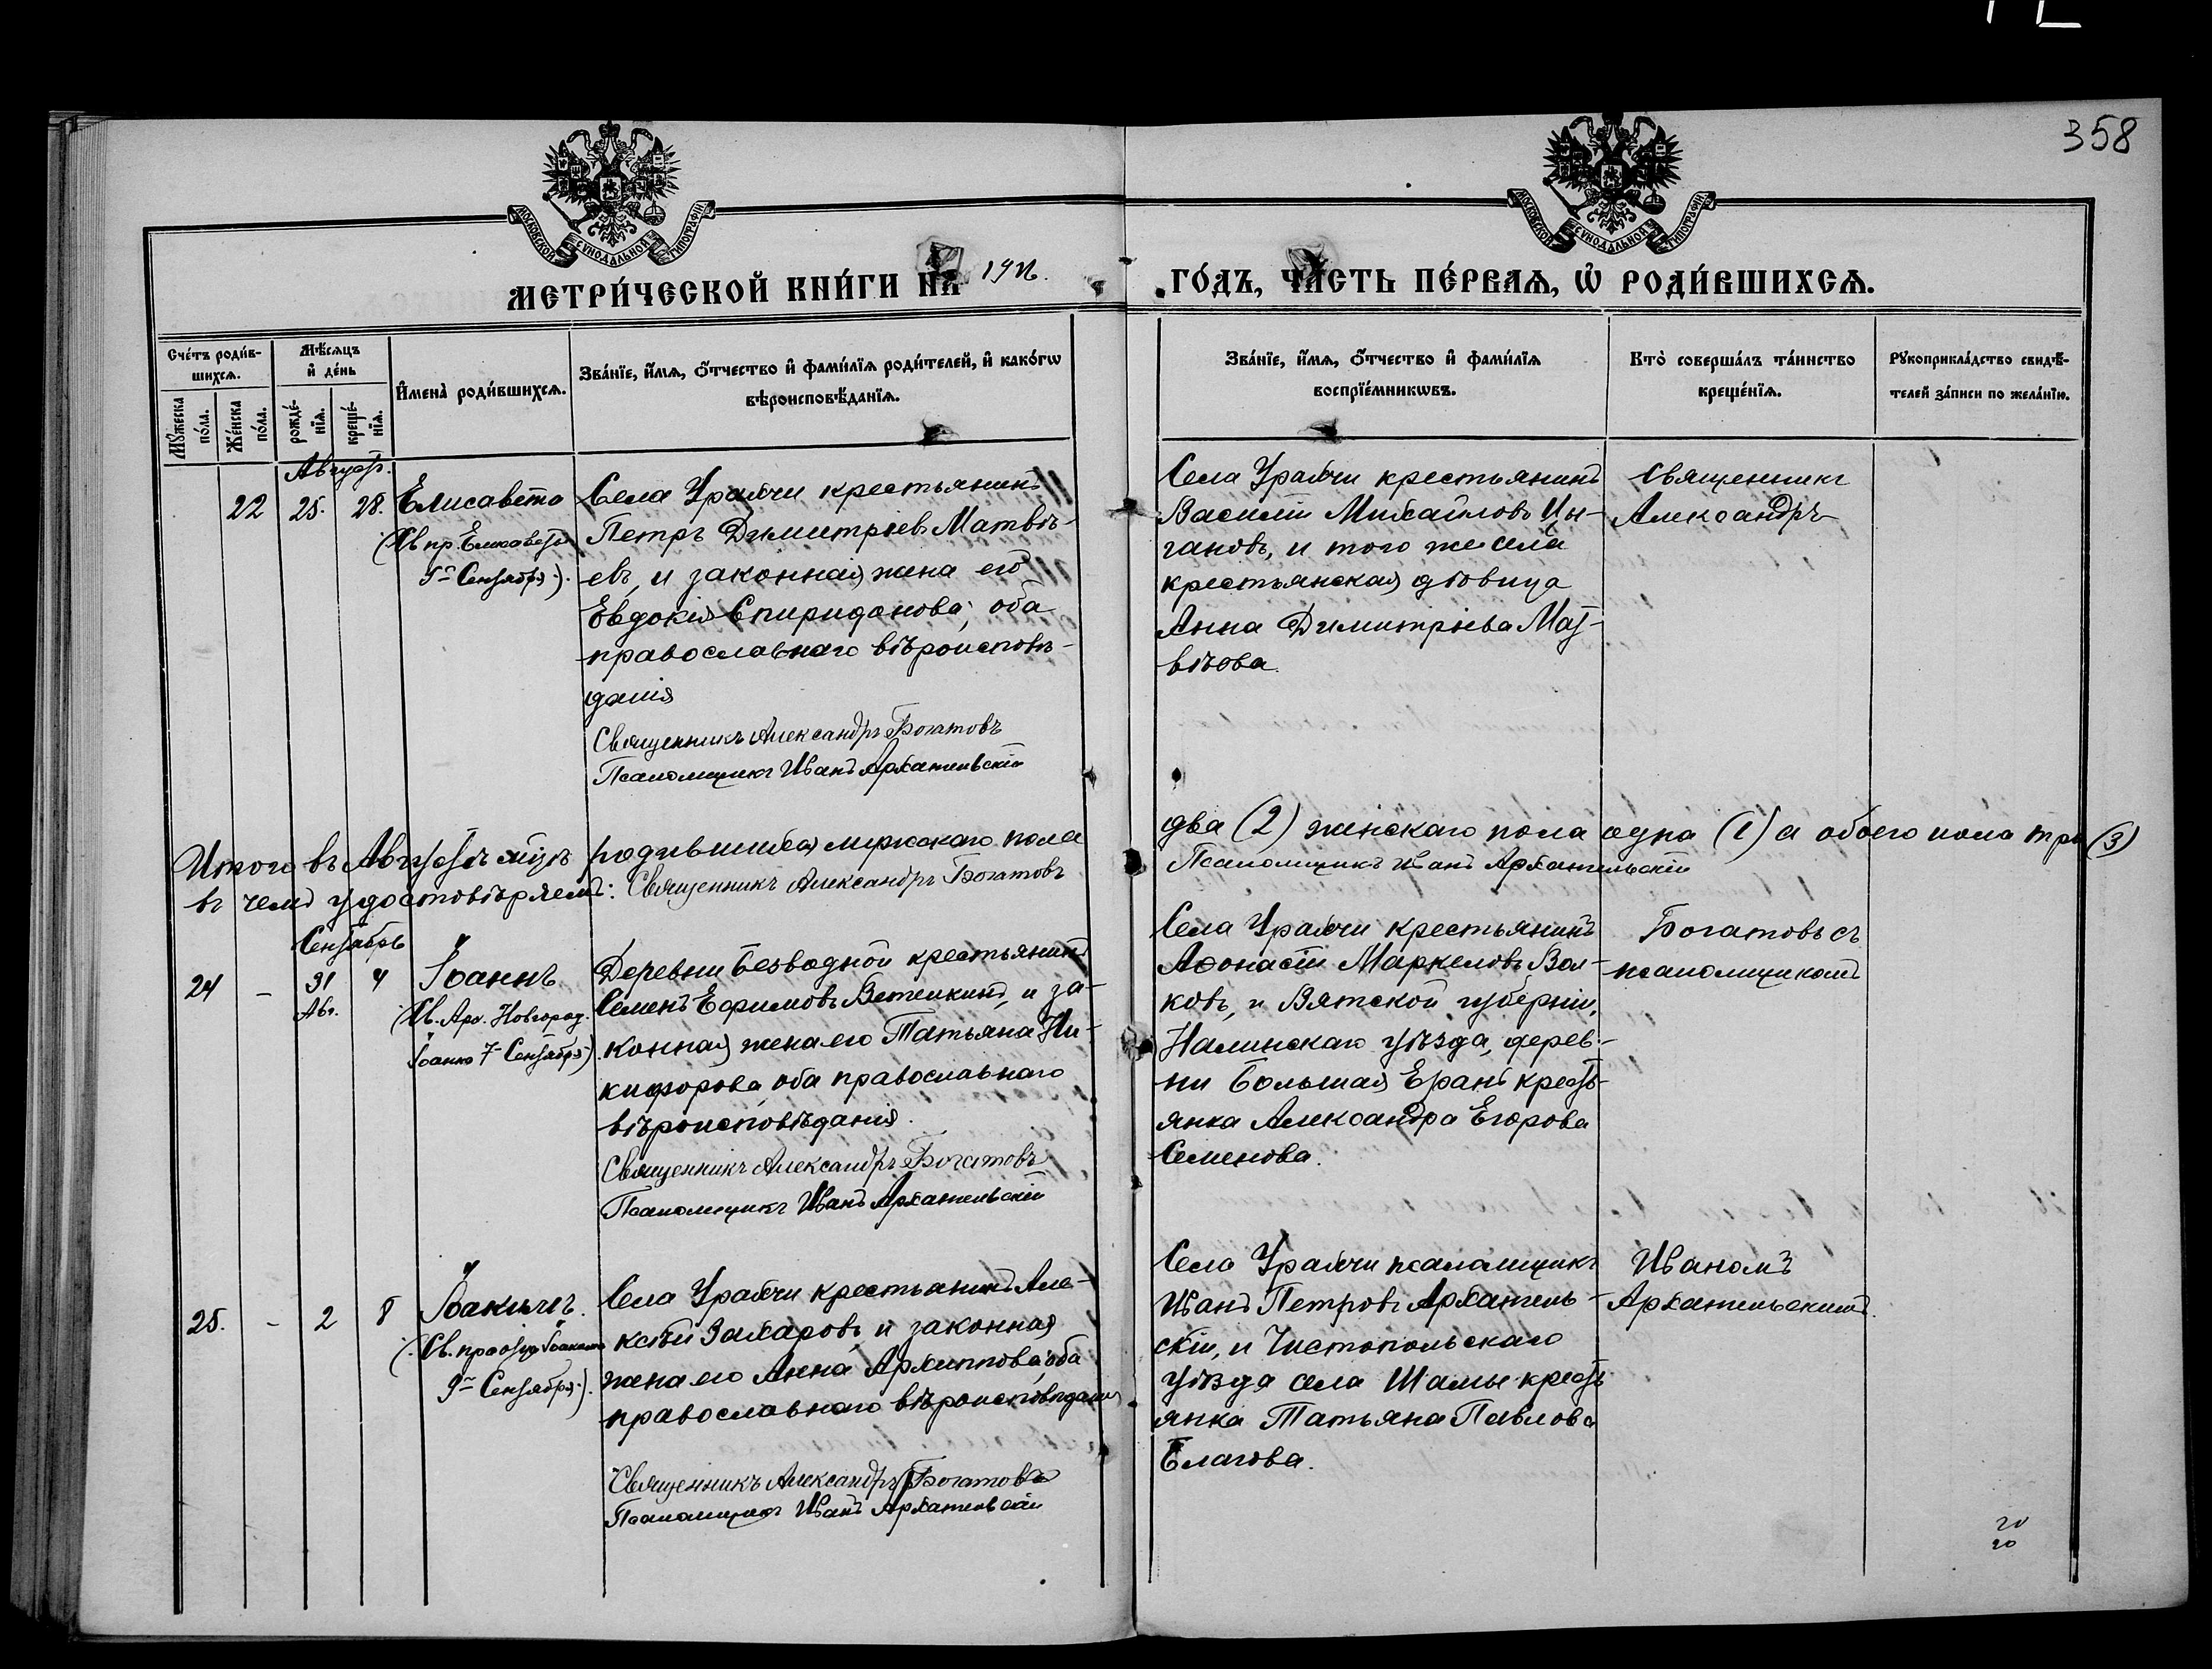 358
МОСКОВСКОЙ СУНОДАЛЬНОЙ ТИПОГРАФІИ
МОСКОВСКОЙ СУНОДАЛЬНОЙ ТИПОГРАФІИ
МЕТРИ́ЧЕСКОЙ КНИ́ГИ НА
ГО́ДЪ, ЧА́СТЬ ПЕ́РВАѦ, Ѡ҆ РОДИ́ВШИХСѦ.
Сче́тъ роди́в-
шихсѧ.
Мꙋ́жеска по́ла.
Же́нска по́ла.
Мѣ́сѧцъ и҆ де́нь
рожде́-нїѧ.
креще́-нїѧ.
И҆мена̀ роди́вшихсѧ.
Зва́нїе, и҆́мѧ, ѻ҆́тчество и҆ фами́лїѧ роди́телей, и҆ како́гѡ
вѣроисповѣ́данїѧ.
Зва́нїе, и҆́мѧ, ѻ҆́тчество и҆ фами́лїѧ
воспрїе́мникѡвъ.
Кто̀ соверша́лъ та́инство
креще́нїѧ.
Рꙋкоприкла́дство свидѣ́-
телей за́писи по жела́нїю.
Августъ.
22 25. 28. Елисавета
(Св пр. Елисаветы
5го Сентября).
Села Урахчи крестьянинъ
Петръ Димитріевъ Матвѣ-
евъ, и законная жена его
Евдокія Спиридонова, оба
православнаго вѣроисповѣ-
данія
Священникъ Александръ Богатовъ
Псаломщикъ Иванъ Архангельскій
Села Урахчи крестьянинъ
Василій Михайловъ Цы-
гановъ, и того же села
крестьянская дѣвица
Анна Димитріева Мат-
вѣева
Священникъ
Александръ
Итого въ Августѣ мцѣ родившихся мужскаго пола два (2) женскаго пола одна (1) а обоего пола три (3)
въ чемъ удостовѣряемъ: Священникъ Александръ Богатовъ Псаломщикъ Иванъ Архангельскій
Сентябрь
24 - 31 4 Іоаннъ
Авг.
(Св. Арх. Новгород.
Іоанна 7 Сентября)
Деревни Безводной крестьянинъ
Семенъ Ефимовъ Ветелкинъ, и за-
конная жена его Татьяна Ни-
кифорова оба православнаго
вѣроисповѣданія.
Священникъ Александръ Богатовъ
Псаломщикъ Иванъ Архангельскій
Села Урахчи крестьянинъ
Афонасій Маркеловъ Вол-
ковъ, и Вятской губерніи,
Нолинскаго уѣзда, дерев-
ни Большая Ерань кресть-
янка Александра Егорова
Семенова.
Богатовъ съ
псаломщикомъ
25. - 2 8 Іоакимъ.
(Св. праотца Іоакима
9го Сентября).
Села Урахчи крестьянинъ Але-
ксѣй Захаровъ, и законная
жена его Анна Архиппова, оба
православнаго вѣроисповѣданія
Священникъ Александръ Богатовъ
Псаломщикъ Иванъ Архангельскій
Села Урахчи псаломщикъ
Иванъ Петровъ Архангель-
скій, и Чистопольскаго
уѣзда села Шамы кресть
янка Татьяна Павлова
Благова.
Иваномъ
Архангельскимъ.
20
20